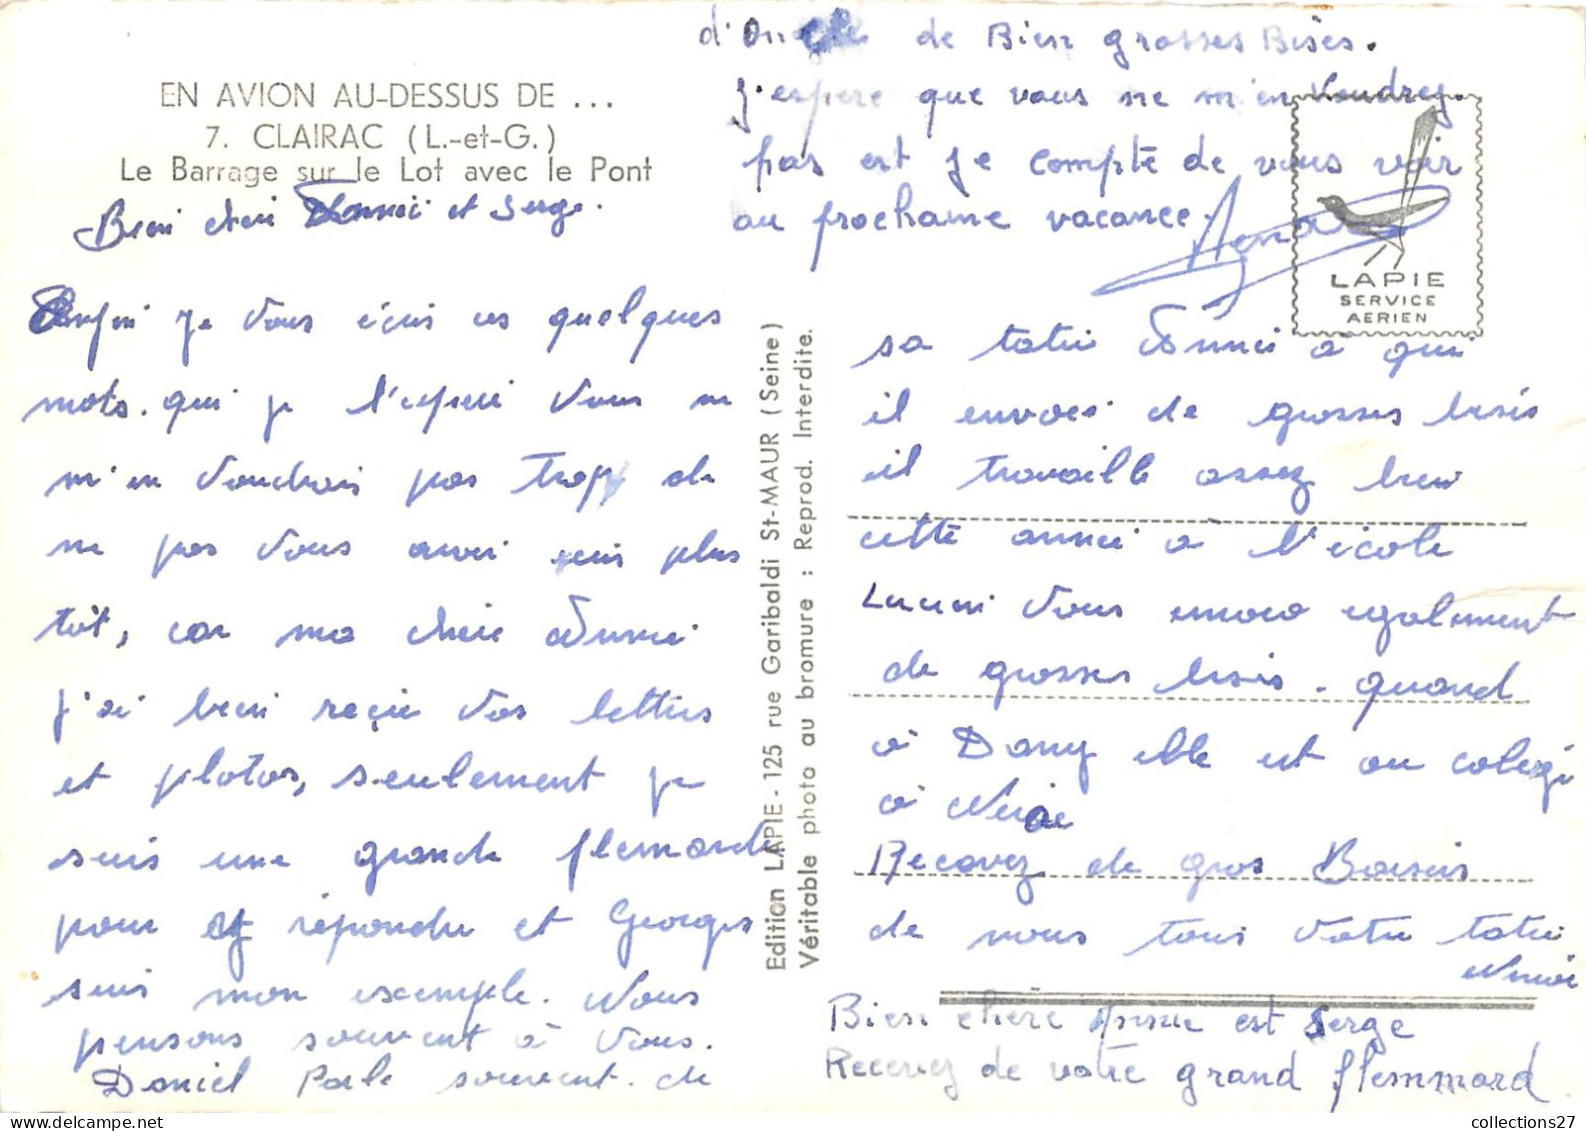 EN AVION AU-DESSUS DE ...
7. CLAIRAC (L.-et-G.)
Le Barrage sur le Lot avec le Pont
Bien cher Annie et Serge.
Enfin je vous écris ces quelques
mots. qui je l'espère vous ne
m'en voudrais pas trop de
ne pas vous avoir plus
tôt, car ma chère Annie
j'ai bien reçue vos lettres
et photos, seulement je
suis une grande flemarde
pour répondre et Georges
suis mon exemple. Nous
pensons souvent à Vous.
Daniel Parle souvent. de
sa tatie Annie à qui
il envoei de grosses bises
il travaille assez bien
cette année à l'école
Lucien Vous envoie egalement
de grosses bises. quand
à Dany elle est au colege
à
Recevez de gros Baisers
de nous tous Votre tatie
Bien chère Annie est Serge
Recevez de votre grand flemmard
d'Oncle de Bien grosses Bises.
J'espere que vous ne m'en voudrez
pas est je compte de vous voir
au prochaine vacance.
LAPIE
SERVICE
AERIEN
Edition LAPIE - 125 rue Garibaldi St-MAUR (Seine)
Véritable photo au bromure : Reprod. Interdite.
collections27